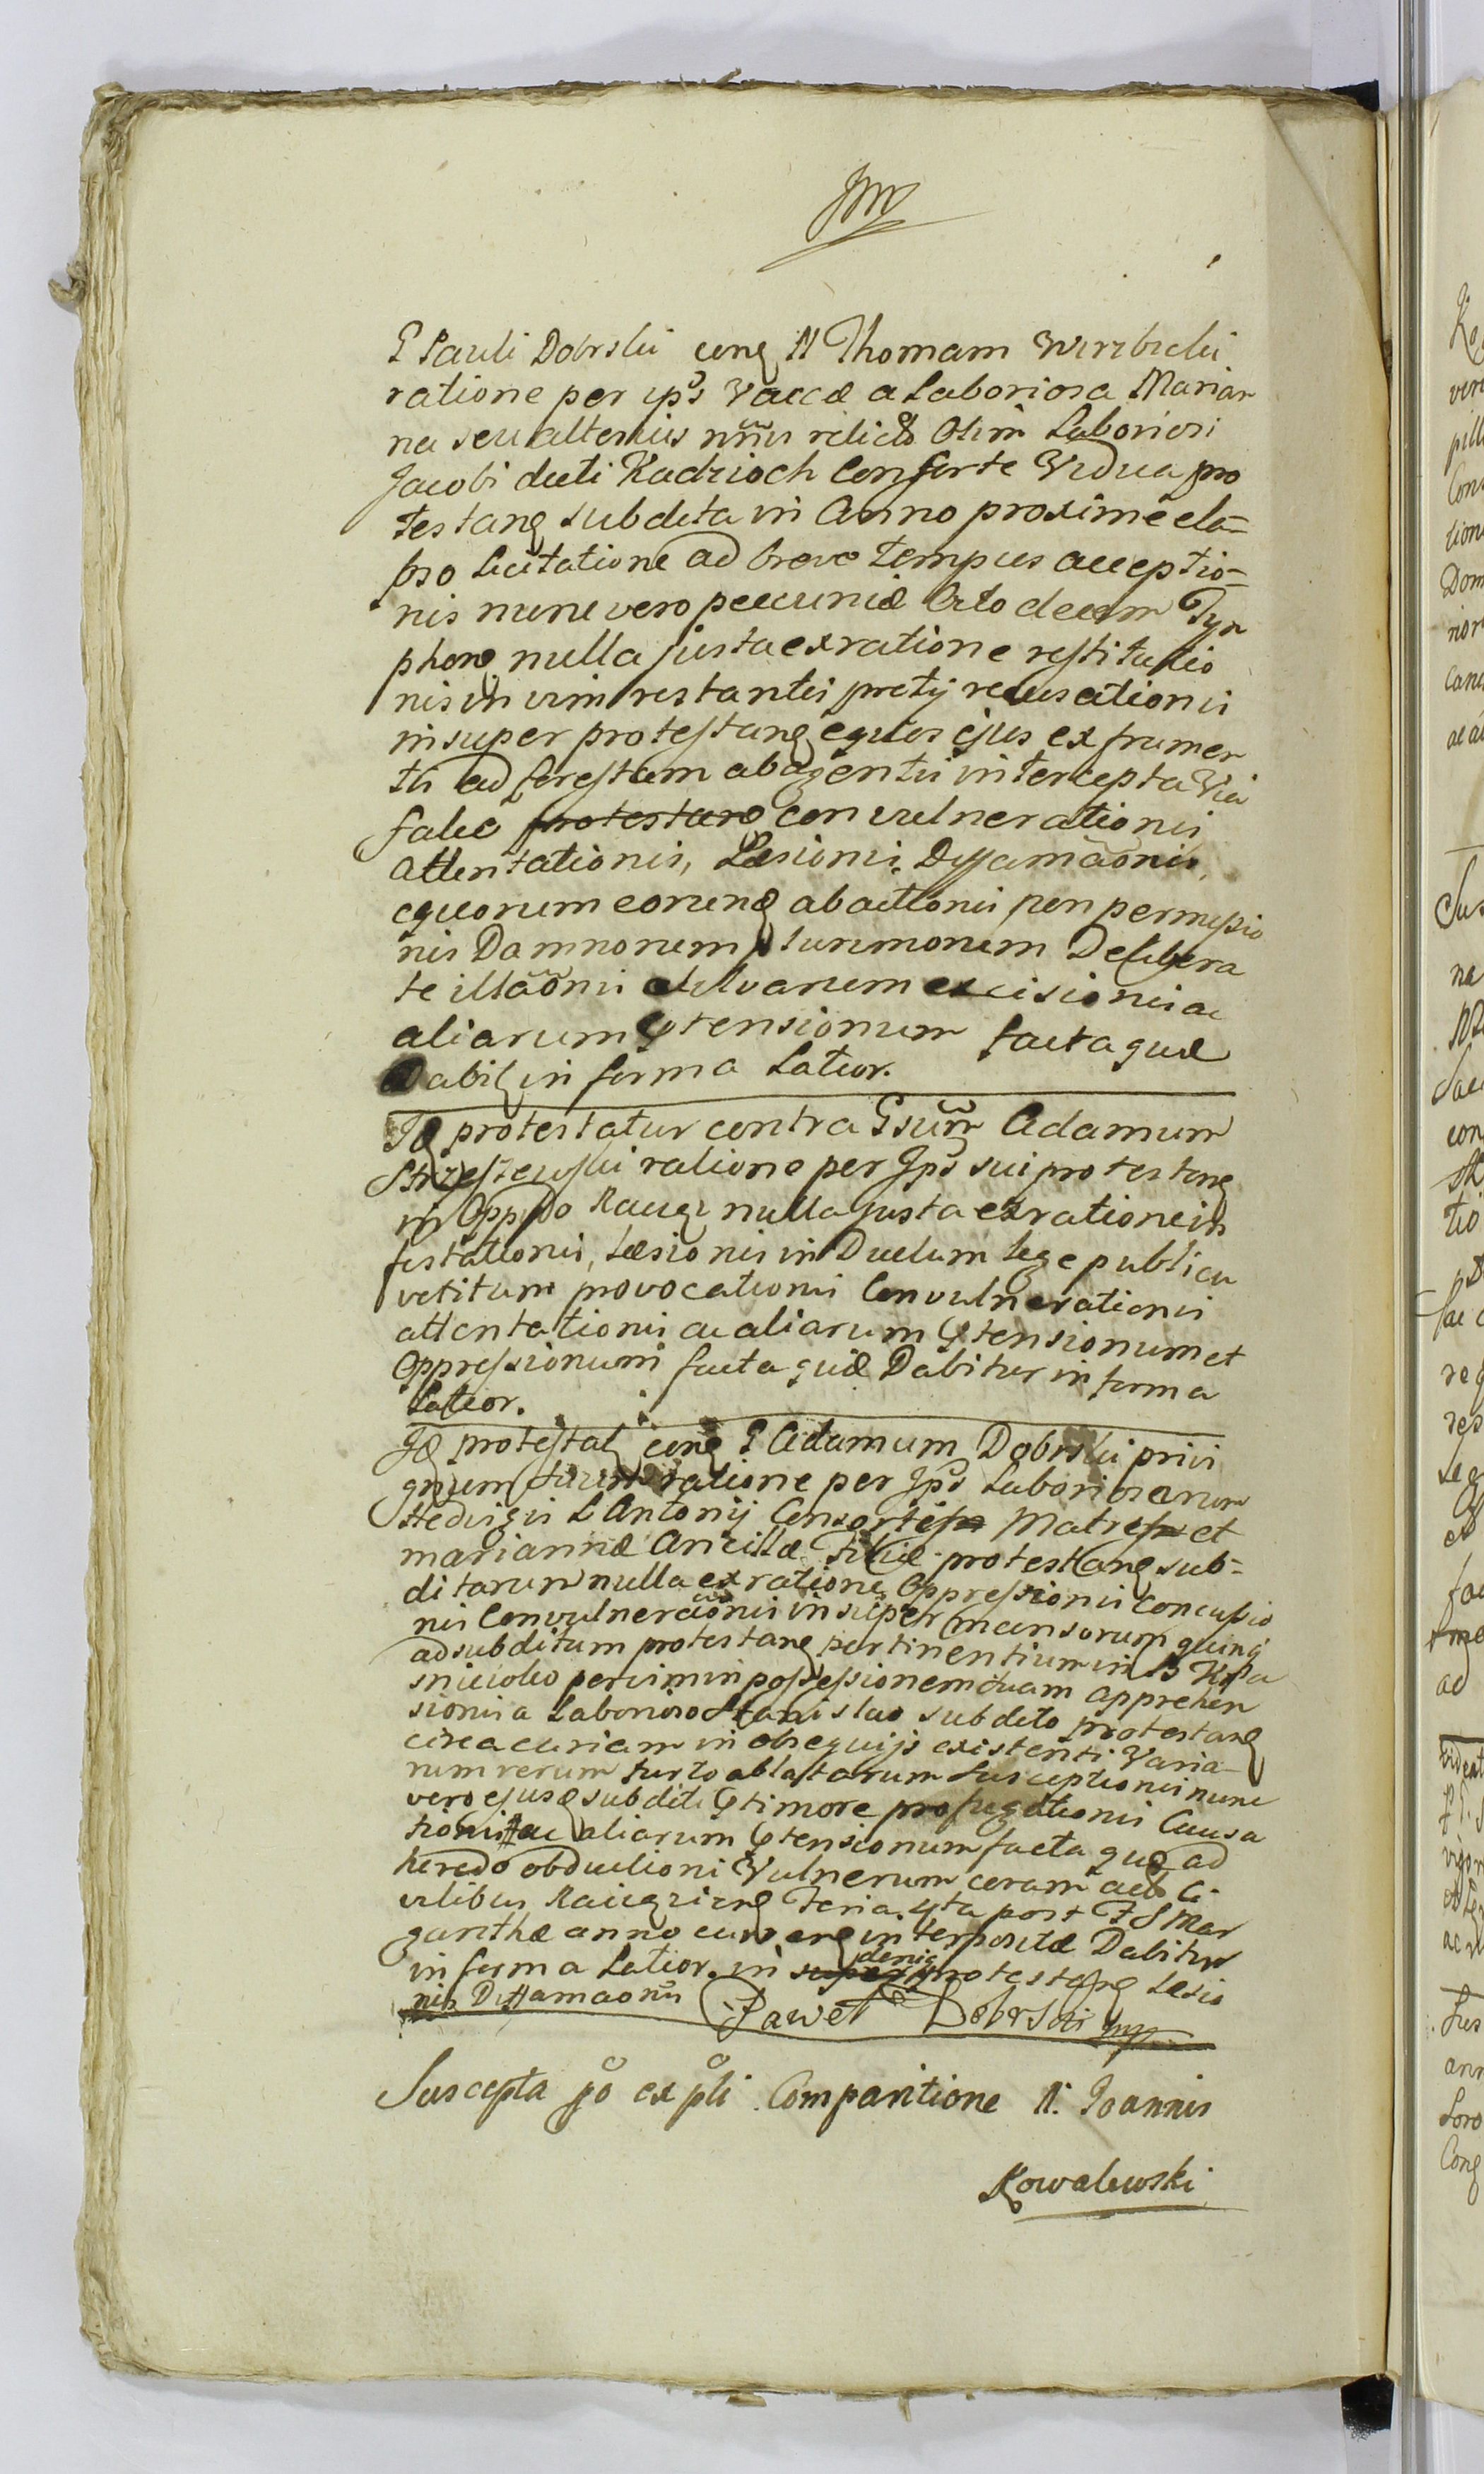 G Pauli Dobrski conq N Thomam Wirzbicki
ratione per ips Vaccæ a Laboriosa Marian
na seu alterius nnis relicta Olim Laboriosi
Jacobi dicti Kadzioch Consorte Vidua pro
testanq subdita in Anno proxime ela=
pso licitatione ad breve tempus acceptio=
nis nunc vero pecuniæ Octo decem Tyn
phonq nulla justa ex ratione restitutio
nis in vim restantis pretij recusationis
insuper protestanq equos ejus ex frumen
tis ad forestam abagentis intercepta Via
falce protestanq convulnerationis
attentationis, Læsionis, Dyffamaonis,
equorum eorunq abactionis non permissio
nis Damnorum plurimorum Delibera
te illaonis Sylvarum excisionis ac
aliarum ptensionum facta quæ
Dabit in forma Latior.
Idq protestatur contra Gsum Adamum
Strzeszewski ratione per Ips sui protestanq
in Oppido Raciąż nulla justa ex ratione in
festationis, Læsionis in Duelum lege publica
vetitum provocationis Convulnerationis
attentationis ac aliarum ptensionum et
Oppressionum facta quæ Dabitur in forma
Latior.
Idq protestat conq G Adamum Dobrski privi
gnum suum ratione per Ips Laboriosarum
Hedvigis L Antonij Consortis Matris et
mariannæ Ancillæ Filiæ protestanq sub=
ditarum nulla ex ratione Oppressionis Concussio
nis Convulneraonis insuper mansorum quinq
ad subditum protestanq pertinentium in B
per vim in possessionem suam apprehen
sionis a Laborioso Stanislao subdito protestanq
circa curiam in obsequijs existenti Varia=
rum rerum furto ablatarum susceptionis nunc
vero ejusdq subditi ptimore profugationis Causa
tionis ac aliarum ptensionum facta quæ ad
hærendo obductioni Vulnerum coram actis Ci=
vilibus Raciązienq Feria 4ta post F S Mar
garithæ anno currenq interpositæ Dabitur
in forma Latior. in super deniq protestanq Læsio
nis Diffamaonis Paweł Dobrski mp
Suscepta po ex pli Comparitione N. Joannis
Kowalewski